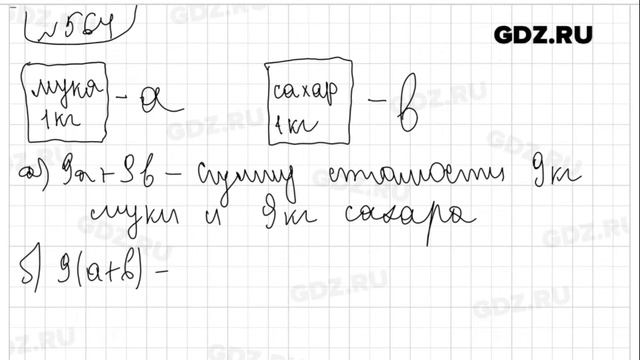 №564
GDZ.RU
мука
1кг
- a
сахар
1кг
- b
а) 9a + 9b - сумму стоимости 9кг
муки и 9кг сахара
б) 9(a+b) -